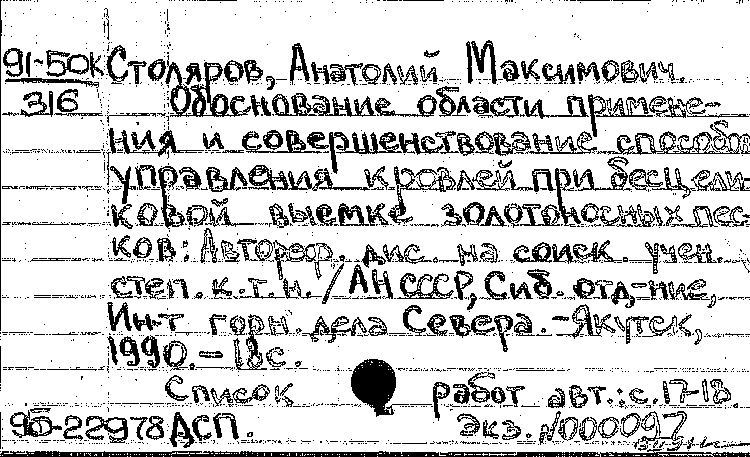 91-50к Столяров, Анатолий Максимович.
316 Обоснование области примене-
ния и совершенствование способов
управления кровлей при бесцели-
ковой выемке золотоносных пес-
ков: Автореф. дис. на соиск. учен.
степ. к.т.н. / АН СССР, Сиб. отд-ние,
Ин-т горн. дела Севера. - Якутск,
1990. - 18с.
Список работ авт.: с.17-18.
9б-22978 ДСП. Экз. N000097